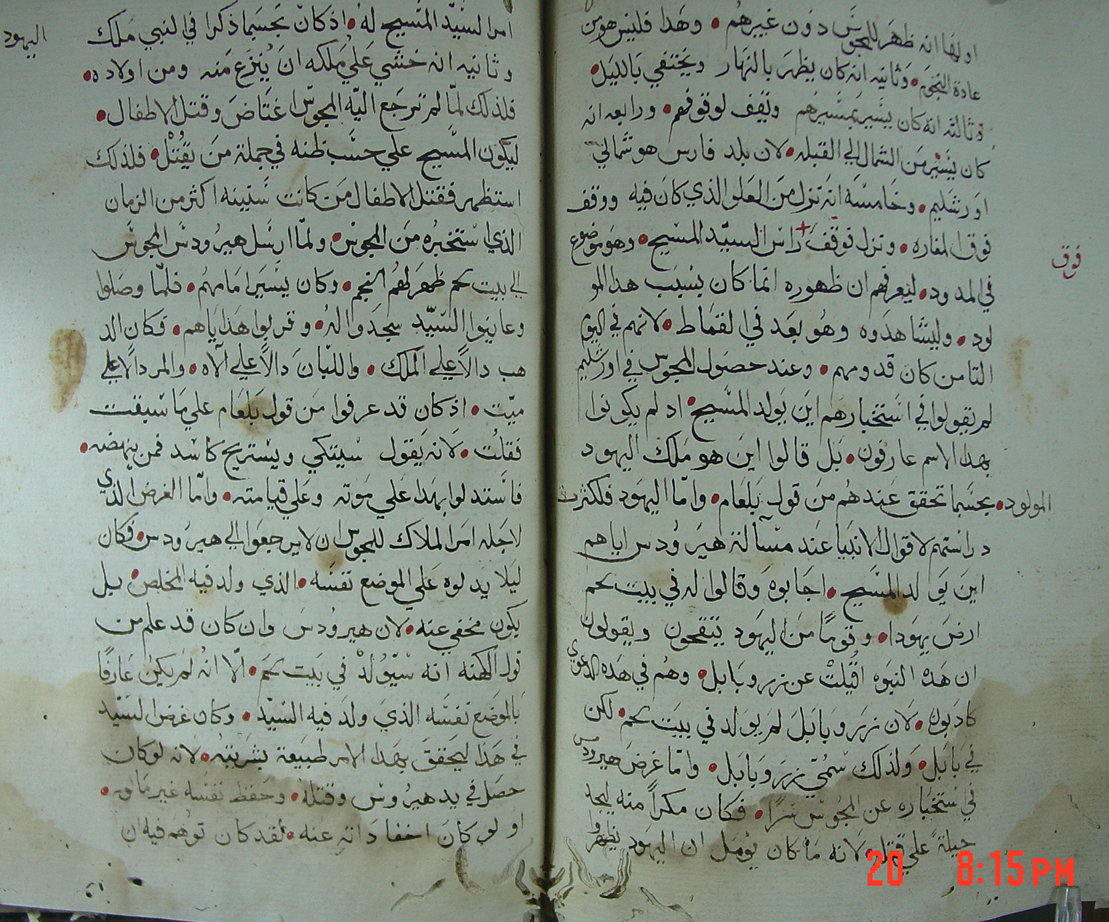 اولها انه ظهر للمجوس دون غيرهم • وهذا فليس هو من
عادة النجوم • وثانيه انه كان يظهر بالنهار ويختفي بالليل •
وثالثه انه كان يسير بمسيرهم ويقف لوقوفهم • ورابعه انه
كان يسير من الشمال الي القبله • لان بلد فارس هو شمالي
اورشليم • وخامسه انه نزل من العلو الذي كان فيه ووقف
فوق المغاره • ونزل فوقف + راس السيد المسيح • وهو موضوع
فوق
في المدود • ليعرفهم ان ظهوره انما كان بسبب هدا المو
لود • وليشاهدوه وهو بعد في القماط • لانهم في اليوم
الثامن كان قدومهم • وعند حصول المجوس في اورشليم
لم يقولوا في استخبارهم اين يولد المسيح • اد لم يكونوا
بهدا الاسم عارفون • بل قالوا اين هو ملك اليهود
المولود • بحسبما تحقق عندهم من قول بلعام • واما اليهود فلكثرت
دراستهم لاقوال الانبيا عند مسآلة هيرودس اياهم
اين يولد المسيح • اجابوه وقالوا له في بيت لحم
ارض يهودا • وقوما من اليهود يتقحون ويقولون
ان هده النبوه اقيلت عن زروبابل • وهم في هده الدعوي
كادبون • لان زروبابل لم يولد في بيت لحم • لكن
في بابل • ولذلك سمي زروبابل • واما غرض هيرودس
في ستخباره عن المجوس سرًا • فكان مكرًا منه ليجد
حيلة علي قتله • لانه ما كان يومل ان اليهود يظهروا
اليهود
امرا لسيد المسيح له • اذ كان بحسبما ذكرا في النبي ملك
وثانيه انه خشي علي ملكه ان ينزع منه ومن اولاده •
فلذلك لما لم ترجع اليه المجوس اغتاض وقتل الاطفال •
ليكون المسيح علي حسب ظنه في جملة من يقتل • فلذلك
استظهر فقتل الاطفال من كانت سنينه اكثر من الزمان
الذي استخبره من المجوس • ولما ارسل هيرودس المجوس
الي بيت لحم ظهر لهم النجم • وكان يسير امامهم • فلما وصلوا
وعاينوا السيد سجدوا له • وقربوا هداياهم • فكان الد
هب دالًا علي الملك • واللبان دالًا علي الاه • والمر دالًا علي
ميت • اذ كان قد عرفوا من قول بلعام علي ما سبقت
فقلت • لانه يقول سيتكي ويستريح كاسد فمن ينهضه •
فاستدلوا بهدا علي موته وعلي قيامته • واما الغرض الذي
لاجله امرا الملاك للمجوس ان لا يرجعوا الي هيرودس • فكان
ليلا يدلوه علي الموضع نفسه • الذي ولد فيه المخلص • بل
يكون مخفي عنه • لان هيرودس وان كان قد علم من
قول الكهنه انه سيولد في بيت لحم • الا انه لم يكن عارفًا
بالموضع نفسه الذي ولد فيه السيد • وكان غرض السيد
في هذا ليحقق بهدا الامر طبيعة بشريته • لانه لو كان
حصل في يد هيروس وقتله • وحفظ نفسه غير مايته •
او لو كان اخفا داته عنه • لقد كان توهم فيه ان
20 8:15PM